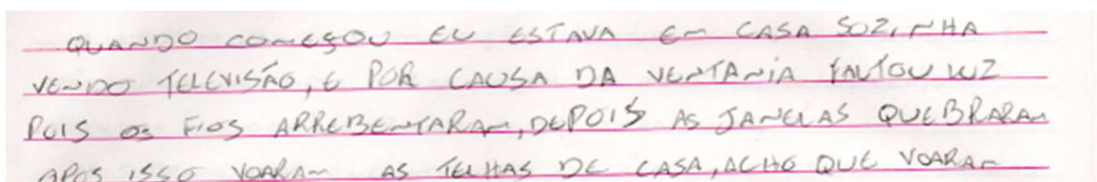 QUANDO COMEÇOU EU ESTAVA EM CASA SOZINHA
VENDO TELEVISÃO, E POR CAUSA DA VENTANIA FALTOU LUZ
POIS OS FIOS ARREBENTARAM, DEPOIS AS JANELAS QUEBRARAM
APOS ISSO VOARAM AS TELHAS DE CASA, ACHO QUE VOARAM